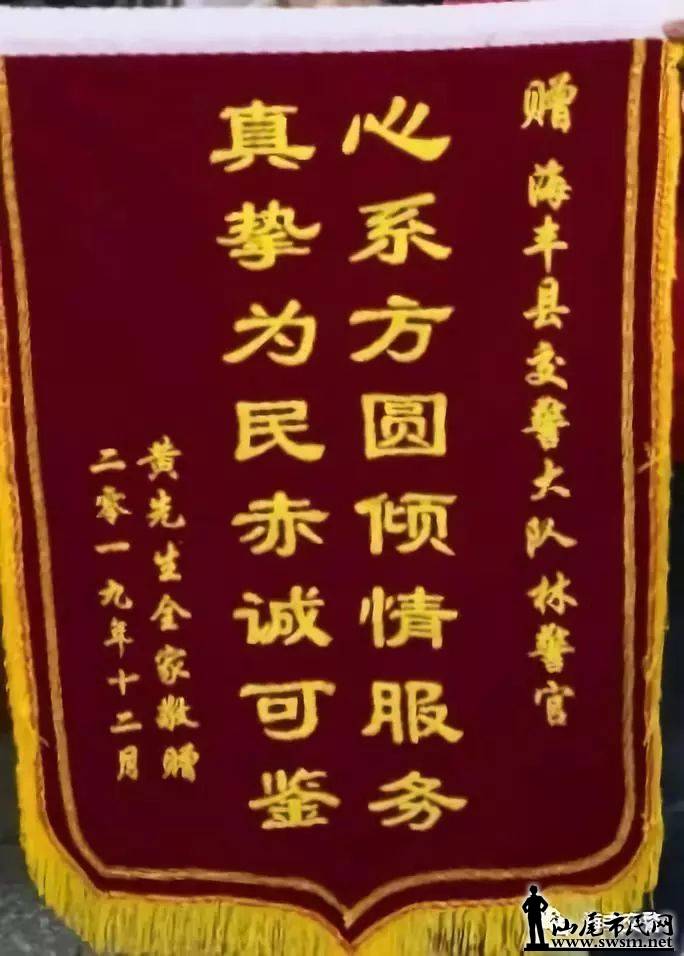 赠 海丰县交警大队林警官
心系方圆倾情服务
真挚为民赤诚可鉴
黄先生全家敬赠
二零一九年十二月
汕尾市民网
www.swsm.net